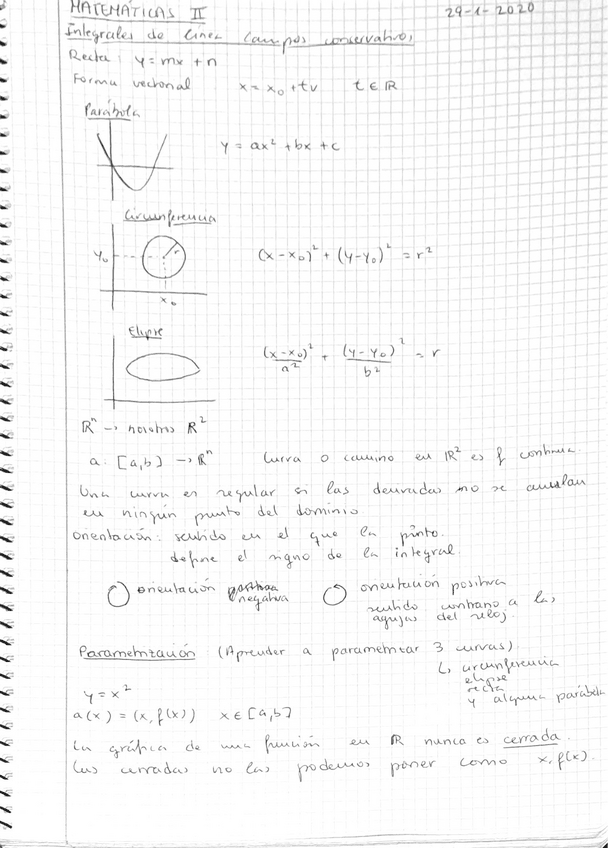 MATEMÁTICAS II 29-1-2020
Integrales de línea Campos conservativos
Recta: y = mx + n
Forma vectorial x = x₀ + tv t ∈ ℝ
Parábola
y = ax² + bx + c
Circunferencia
y₀ r (x - x₀)² + (y - y₀)² = r²
x₀
Elipse
(x - x₀)²/a² + (y - y₀)²/b² = r
ℝⁿ → nosotros ℝ²
a: [a,b) → ℝⁿ Curva o camino en ℝ² es f continua.
Una curva es regular si las derivadas no se anulan
en ningún punto del dominio.
Orientación: sentido en el que la pinto.
define el signo de la integral.
orientación negativa orientación positiva
sentido contrario a las
agujas del reloj.
Parametrización (Aprender a parametrizar 3 curvas)
↳ circunferencia
elipse
recta
y alguna parábola
y = x²
a(x) = (x, f(x)) x ∈ [a,b]
La gráfica de una función en ℝ nunca es cerrada.
Las cerradas no las podemos poner como x, f(x).